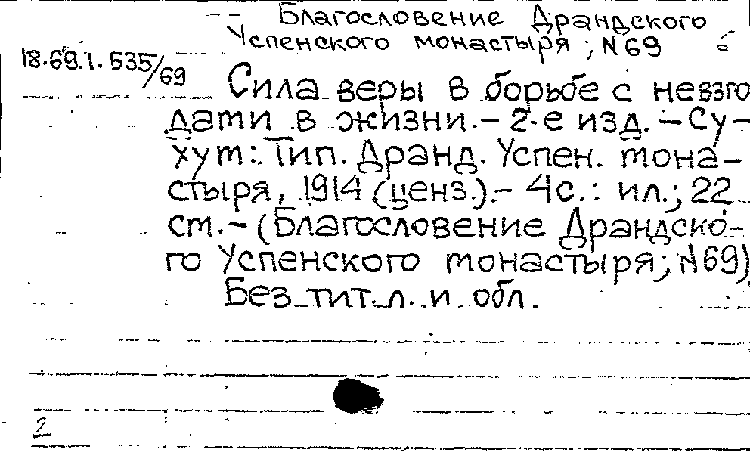 -- Благословение Драндского
Успенского монастыря; N69
18.69.1.535/69
Сила веры в борьбе с невзго
дами в жизни.- 2-е изд. - Су-
хум: Тип. Дранд. Успен. мона-
стыря, 1914 (ценз.).- 4с.: ил.; 22
см.- (Благословение Драндско-
го Успенского монастыря; N69)
Без тит. л. и обл.
2